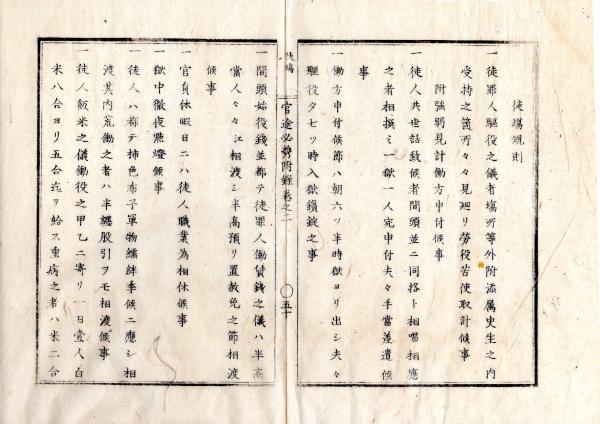 徒場規則
一徒罪人驅役之儀者塲所等外附添属史生之内
受持之箇所々々見廻リ勞役苦使取計候事
附強弱見計働方申付候事
一徒人共世話致候者間頭並ニ同挌ト相唱相應
之者相撰ミ一獄一人宛申付夫々手當差遣候
事
一働方申付候節ハ朝六ツ半時獄ヨリ出シ夫々
驅役夕七ツ時入獄鎖錠之事
徒塲
官途必携附録巻之二
〇五十
一間頭始役錢並都テ徒罪人働賃錢之儀ハ半高
當人々々江相渡シ半高預リ置赦免之節相渡
候事
一官員休暇日ニハ徒人職業為相休候事
一獄中徹夜㸃燈候事
一徒人ハ都テ柿色布子單物繻絆季候ニ應シ相
渡其内荒働之者ハ半纏股引ヲモ相渡候事
一徒人飯米之儀働役之甲乙ニ寄リ一日壹人白
米八合ヨリ五合迄ヲ給ス重病之者ハ米二合